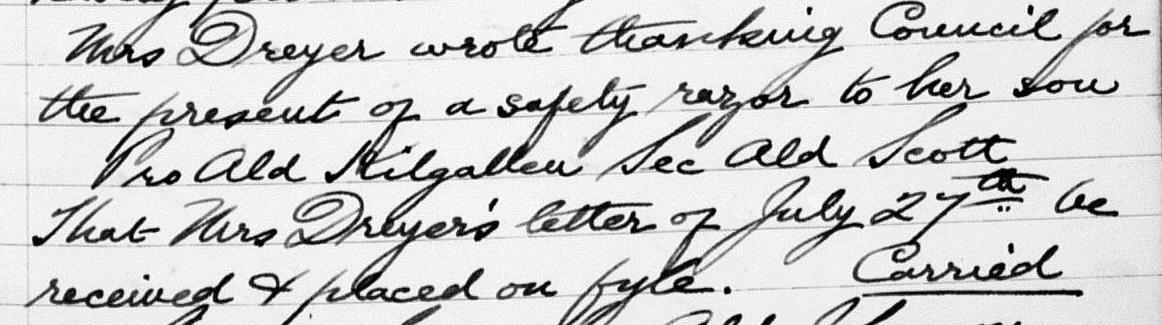 Mrs Dreyer wrote thanking Council for
the present of a safety razor to her son
Pro Ald Kilgallen Sec Ald Scott
That Mrs Dreyer's letter of July 27th be
received & placed on fyle. Carried